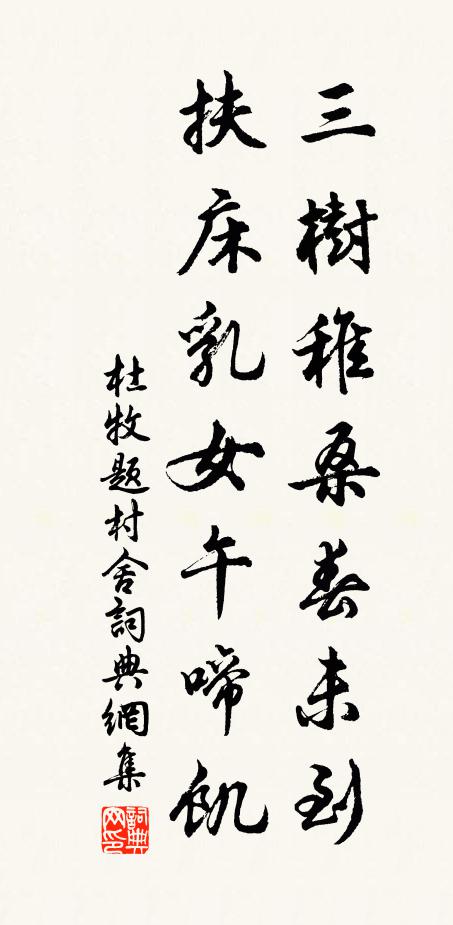 三樹稚桑春未到
扶床乳女午啼飢
杜牧題村舍詞典網集
詞典網印